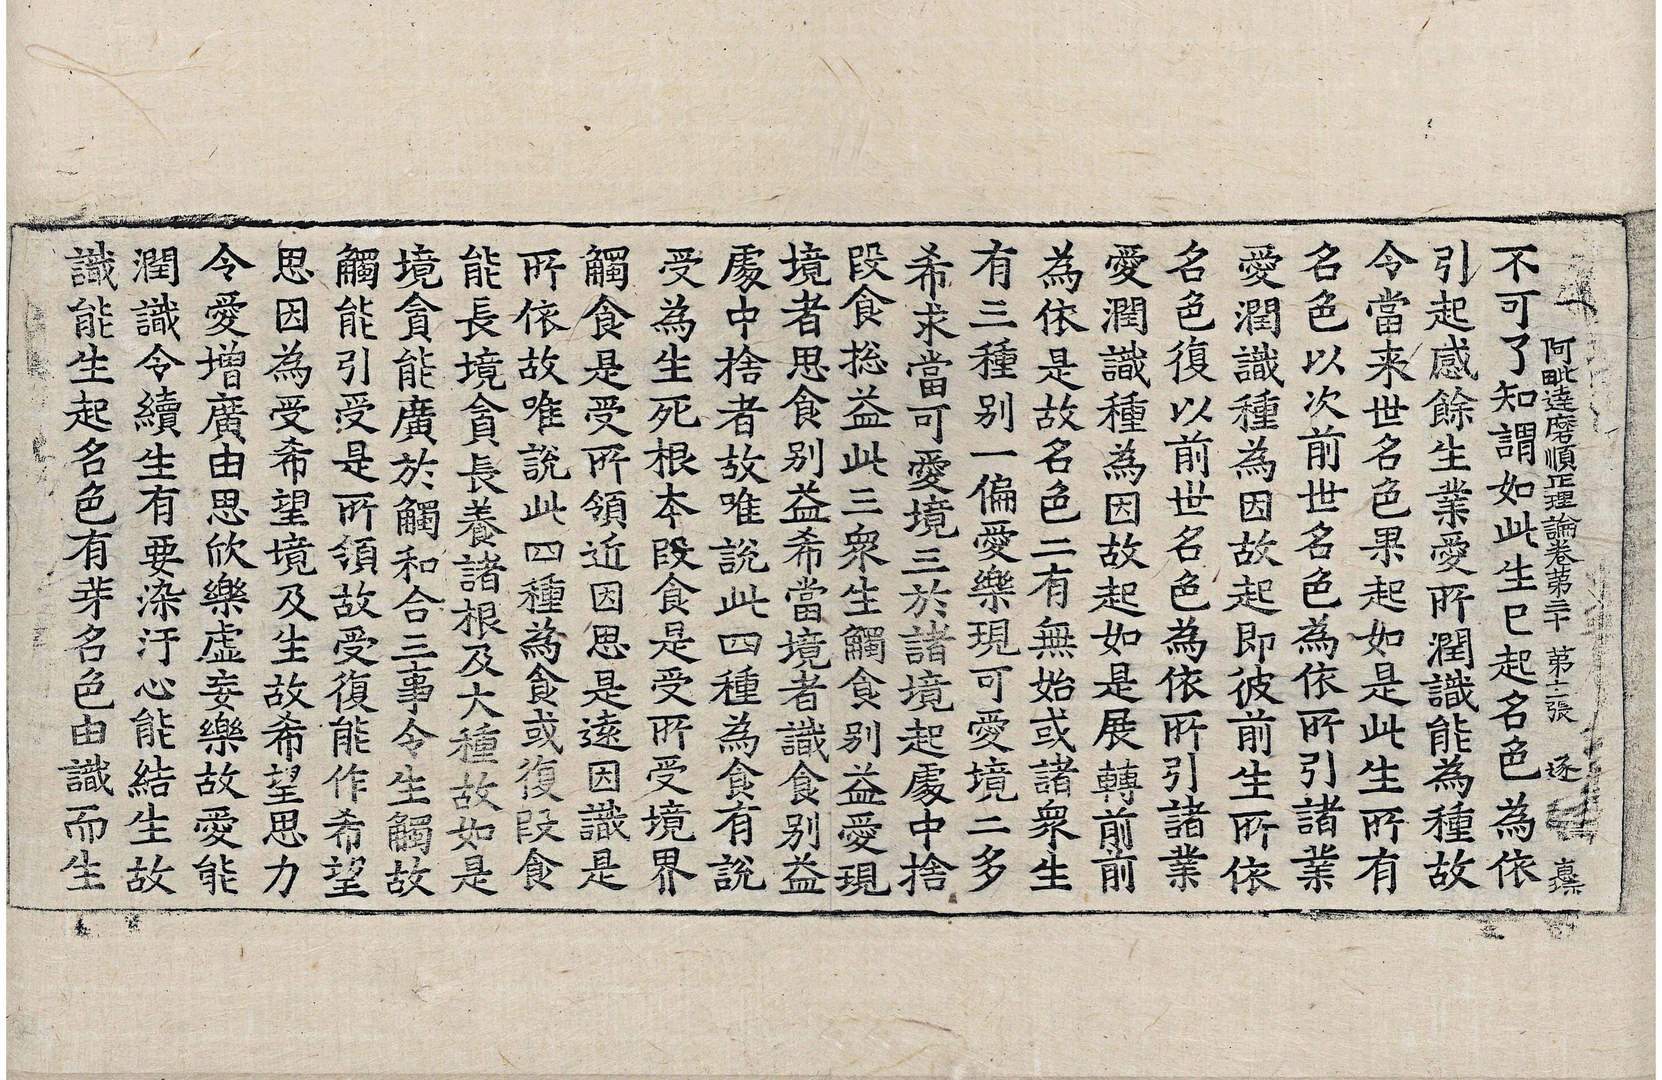 阿毗達磨順正理論卷第三十 第十二張 逐
不可了知謂如此生已起名色為依
引起感餘生業愛所潤識能為種故
令當来世名色果起如是此生所有
名色以次前世名色為依所引諸業
愛潤識種為因故起即彼前生所依
名色復以前世名色為依所引諸業
愛潤識種為因故起如是展轉前前
為依是故名色二有無始或諸衆生
有三種别一偏愛樂現可愛境二多
希求當可愛境三於諸境起處中捨
段食揔益此三衆生觸食别益愛現
境者思食别益希當境者識食别益
處中捨者故唯說此四種為食有說
受為生死根本段食是受所受境界
觸食是受所領近因思是遠因識是
所依故唯說此四種為食或復段食
能長境貪長養諸根及大種故如是
境貪能廣於觸和合三事令生觸故
觸能引受是所領故受復能作希望
思因為受希望境及生故希望思力
令愛增廣由思欣樂虛妄樂故愛能
潤識令續生有要染汙心能結生故
識能生起名色有芽名色由識而生